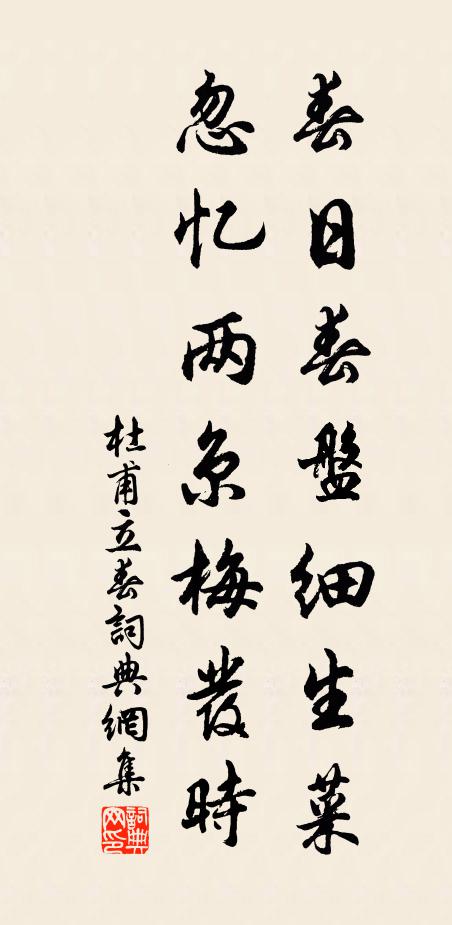 春日春盤细生菜
忽忆两京梅發時
杜甫立春詞典網集
詞典网印